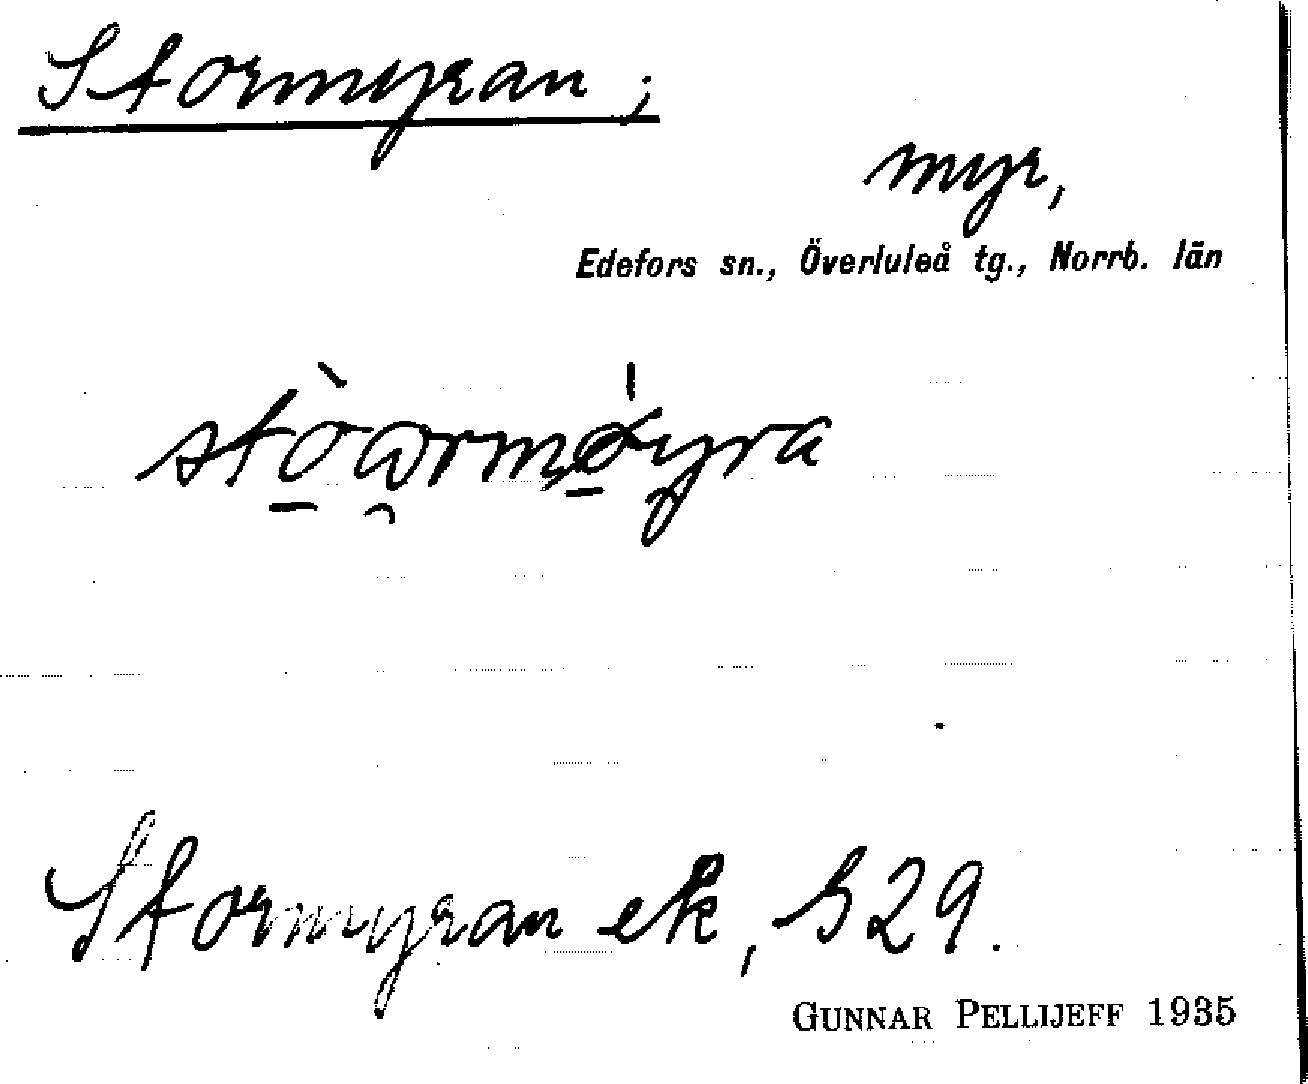 Stormyran;
myr,
Edefors sn., Överluleå tg., Norrb. län
Stormyran ek, S29.
GUNNAR PELLIJEFF 1935